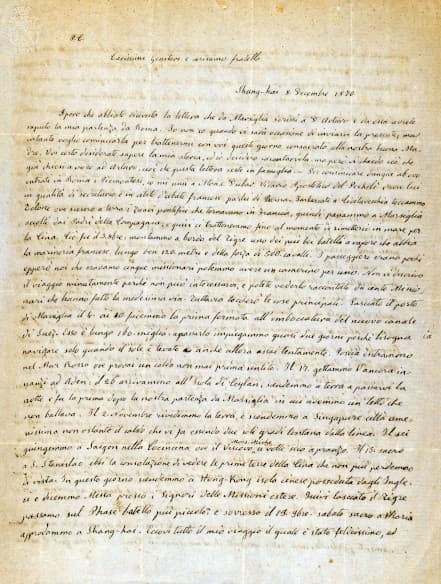 P.C.
Carissimi Genitori e carissimo fratello
Shang-hai 8 Decembre 1870
Spero che abbiate ricevuto la lettera che da Marsiglia scrissi a D. Arturo e da essa avrete
saputo la mia partenza da Roma. Io non so quando vi sarà occasione di inviarvi la presente, ma
intanto voglio cominciarla per trattenermi con voi questo giorno consacrato alla nostra buona Ma-
dre. Voi certo desiderate sapere la mia storia, ed io raccontarvela, ma però vi chiedo ciò che
già chiesi a voce ad Arturo, cioè che questa lettera resti in famiglia. Per cominciare dunque
entrati in Roma i Piemontesi, io mi unii a Mons. Dubar Vicario Apostolico del Pechelì
in qualità di secretario e in abito d'Abate francese partii di Roma. a Civitavecchia toccammo
Tolone ove scesero a terra i Zuavi pontifici che tornavano in Francia, quindi passammo a Marsiglia
accolti dai Padri della Compagnia, e quivi ci trattenemmo fino al momento di rimetterci in mare per
la Cina. Ciò fu il 9bre. montammo a bordo del Tigre uno dei più bei battelli a vapore che abbia
la marineria francese, lungo ben 120 metri e della forza di 500 cavalli. I passeggeri erano pochi
epperò noi che eravamo cinque missionari potemmo avere un camerino per uno. Non vi descrivo
il viaggio minutamente perchè non può interessarvi, e potete vederlo raccontato da cento Missio-
nari che hanno fatto la medesima via. Tuttavia toccherò le cose principali. Lasciato il porto
di Marsiglia il 4 ai 10 facemmo la prima fermata all'imboccatura del nuovo canale
di Suez. Esso è lungo 160 miglia, a passarlo impiegammo quasi due giorni perchè bisogna
navigare solo quando il sole è levato e anche allora assai lentamente. Poscia entrammo
nel Mar Rosso ove provai un caldo non mai prima sentito. Il 17 gettammo l'ancora in-
nanzi ad Aden, il 26 arrivammo all'Isola di Ceylan, scendemmo a terra a passarvi la
notte e fu la prima dopo la nostra partenza da Marsiglia in cui avemmo un letto che
non ballava. Il 2 Novembre rivedemmo la terra, e scendemmo a Singapore città ame-
nissima non ostante il caldo che vi fa essendo due soli gradi lontana dalla linea. Il sei
giungemmo a Saigon nella Cocincina ove il Vescovo Mons. Miche ci volle seco a pranzo. Il 13 sacro
a S. Stanislao ebbi la consolazione di vedere le prime terre della Cina che non più perdemmo
di vista. In questo giorno scendemmo a Hong-Kong isola cinese posseduta dagli Ingle-
si e dicemmo Messa presso i Signori delle Missioni estere. Quivi lasciato il Tigre
passammo sul Phase battello più piccolo e verso il 18 9bre. sabato sacro a Maria
approdammo a Shang-hai. Eccovi tutto il mio viaggio il quale è stato felicissimo, ed